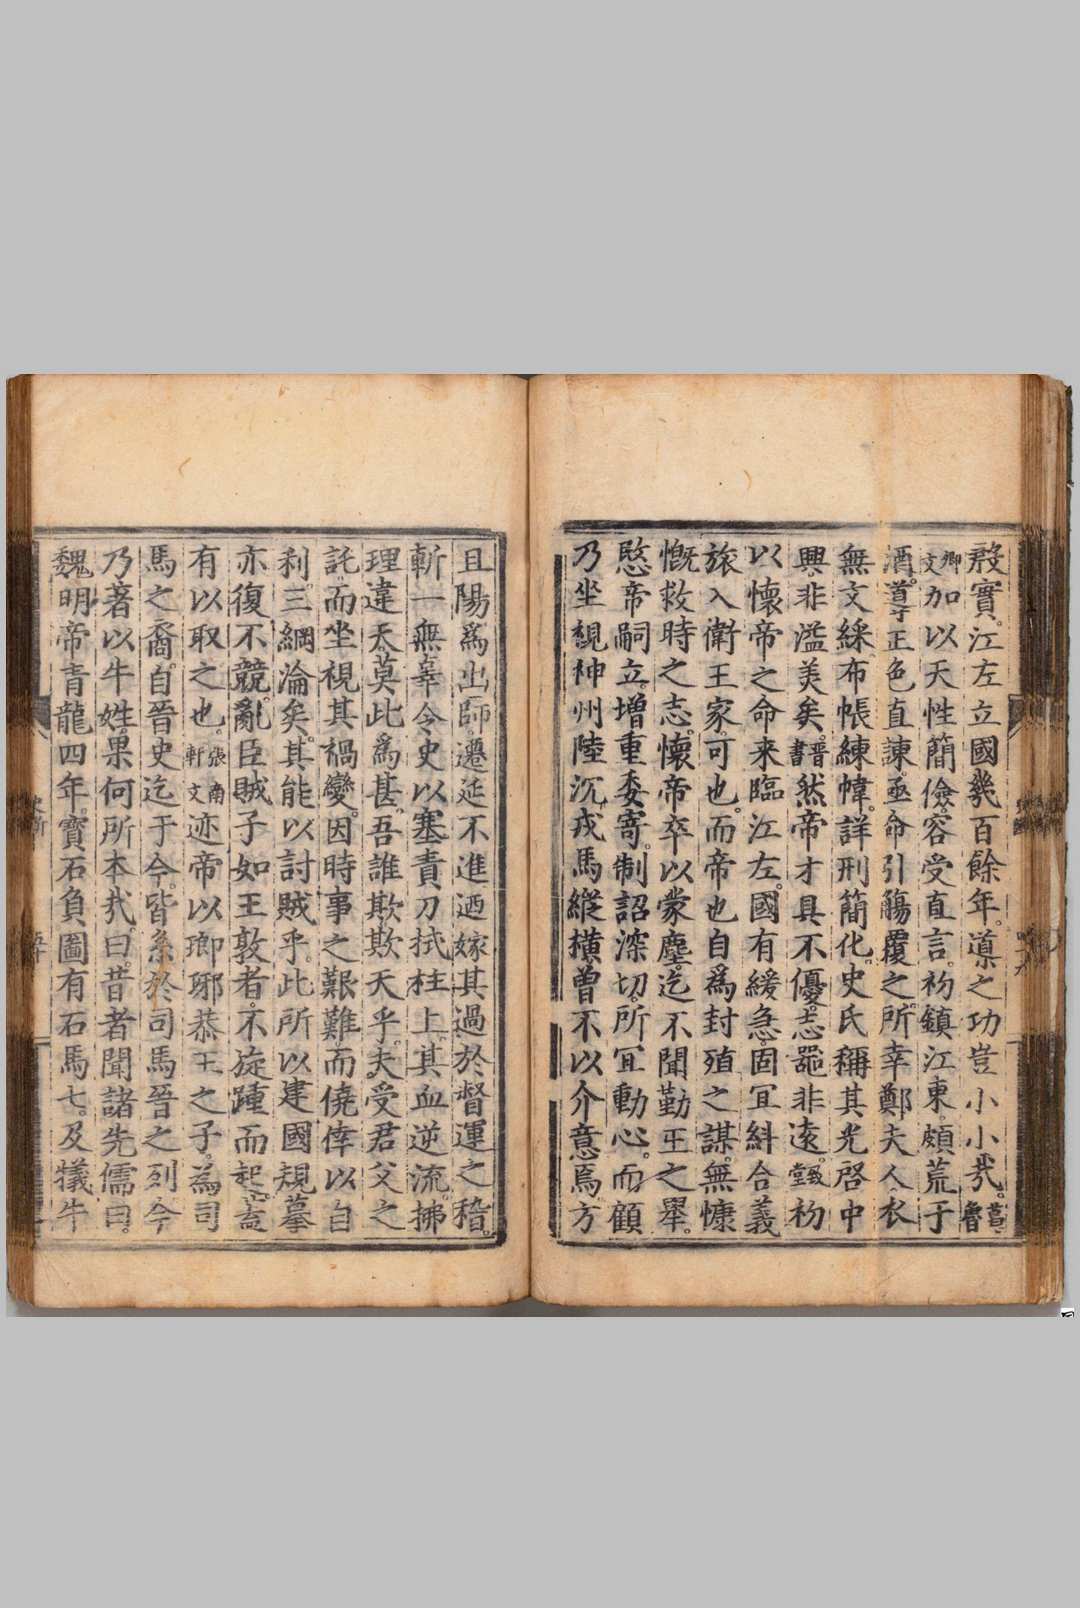 殽實江左立國幾百餘年導之功豈小小㢤葛魯
卿文加以天性簡儉容受直言初鎮江東頗荒于
酒道寸正色直諫亟命引觴覆之所幸鄭夫人衣
無文綵布帳練幃詳刑簡化史氏稱其光啓中
興非溢美矣晉書然帝才具不優志器非遠致堂初
以懷帝之命来臨江左國有緩急固冝糾合義
旅入衛王家可也而帝也自爲封殖之謀無慷
慨救時之志懷帝卒以蒙塵迄不聞勤王之舉
愍帝嗣立增重委寄制詔深切所冝動心而顧
乃坐視神州陸沉戎馬縱横曽不以介意焉方
且陽爲出師遷延不進迺嫁其過於督運之稽
斬一無辜令史以塞責刀拭柱上其血逆流拂
理違天莫此爲甚吾誰欺欺天乎夫受君父之
託而坐視其禍變因時事之艱難而僥倖以自
利三綱淪矣其能以討賊乎此所以建國規摹
亦復不競亂臣賊子如王敦者不旋踵而起盖
有以取之也張南軒文迹帝以瑯琊恭王之子為司
馬之裔自晉史迄于今皆系於司馬晉之列今
乃著以牛姓果何所本㢤曰昔者聞諸先儒曰
魏明帝青龍四年寳石負圖有石馬七及犠牛